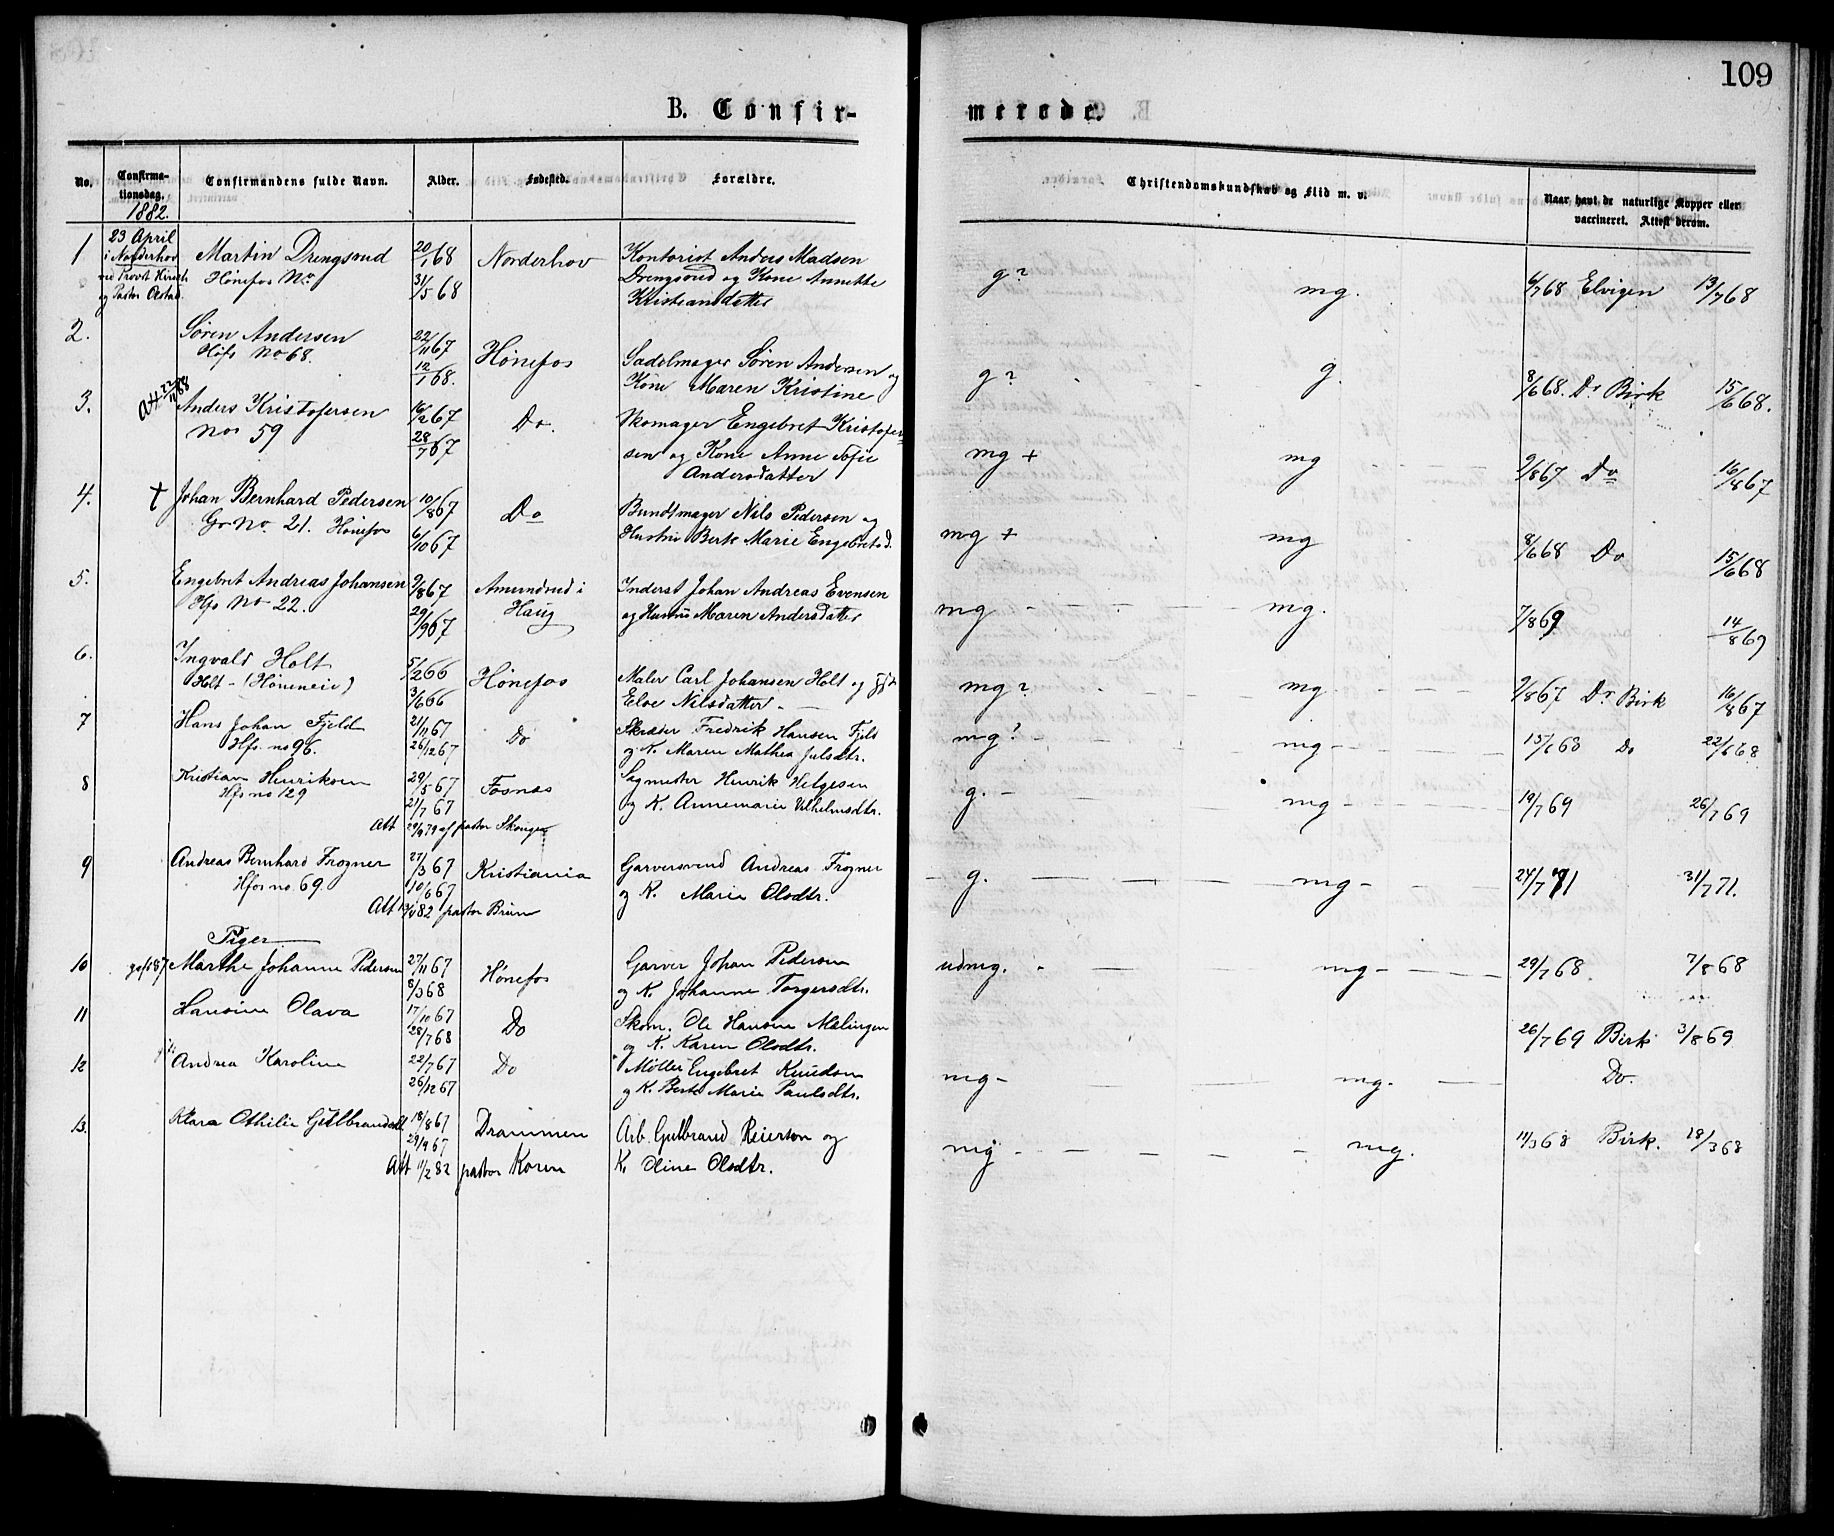 109
B. Confir-
merede.
No.
Confirma-
tionsdag.
1882.
Confirmandens fulde Navn.
Alder.
Fødested.
Forældre.
Christendomskundskab og Flid m. v.
Naar havt de naturlige Kopper eller
vaccineret. Attest derom.
1
23 April
i Norderhov
og Pastor
Martin Drengsrud
Hønefos No.
20/1 68
31/5 68
Norderhov
Kontorist Anders Madsen
Drengsrud og Kone Annette
Kristiansdatter
g?
mg.
6/7 68 Elvigen 13/7 68
2.
Søren Andersen
Høfs No 68.
22/11 67
12/1 68.
Hønefos
Sadelmager Søren Andersen og
Kone Maren Kristine
g?
g.
8/6 68. Dr Birk 15/6 68.
3.
Anders Kristofersen
No. 59
16/2 67
28/7 67
Do.
Skomager Engebret Kristofer-
sen og Kone Anne Sofie
Andersdatter
mg +
mg
2/8 67 Do 16/8 67
4.
†
Johan Bernhard Pedersen
No. 21. Hønefos
10/8 67
6/10 67
Do
Bundtmager Nils Pedersen og
Hustru Berte Marie Engebretsd.
mg +
mg
8/6 68 Do 15/6 68
5.
Engebret Andreas Johansen
Hfs No 22.
2/8 67
29/9 67
Amundrud i
Haug
Inderst Johan Andreas Evensen
og Hustru Maren Andersdatter
mg
mg.
7/8 69
14/8 69
6.
Ingvald Holt
Holt - (Høneneie)
5/2 66
3/6 66
Hønefos
Maler Carl Johansen Holt og
Elve Nilsdatter
mg?
mg
2/8 67 Dr. Birk 16/8 67
7
Hans Johan Fjeld
Hfs. no 96.
21/11 67
26/12 67
Do
Skræder Fredrik Hansen Fjeld
og K. Maren Mathea Julsdtr.
mg?
mg
15/6 68 Do 22/6 68
8
Kristian Henriksen
Hfs no 129
29/5 67
21/7 67
Fosnæs
Sagmester Henrik Helgesen
og K. Annemarie Vilhelmsdtr.
g.
mg
19/7 69
26/7 69
Att 29/9 79 af pastor
9
Andreas Bernhard Frogner
Hfos no. 69.
27/3 67
10/6 67
Kristiania
Garversvend Andreas Frogner
og K. Marie Olsdtr.
g.
mg
24/7 71
31/7 71.
Att 13/4 82 pastor Brun
Piger
10
Marthe Johanne Pedersen
27/11 67
8/3 68
Hønefos
Garver Johan Pedersen
og K. Johanne Torgersdtr.
udmg.
mg
29/7 68
7/8 68
11
Hansine Olava
17/10 67
28/7 68
Do
Skom. Ole Hansen Mælingen
og K. Karen Olsdtr.
26/7 69 Birk 3/8 69
12
Andrea Karoline
22/7 67
26/12 67
Do
Møller Engebret Knudsen
og K. Berte Marie Paulsdtr.
mg
mg.
Do.
13.
Klara Othilie Gulbrandsdt
18/8 67
29/9 67
Drammen
Arb. Gulbrand Reierson og
K. Oline Olsdtr.
mg
mg.
11/3 68 Birk. 18/3 68
Att 11/2 82 pastor Koren